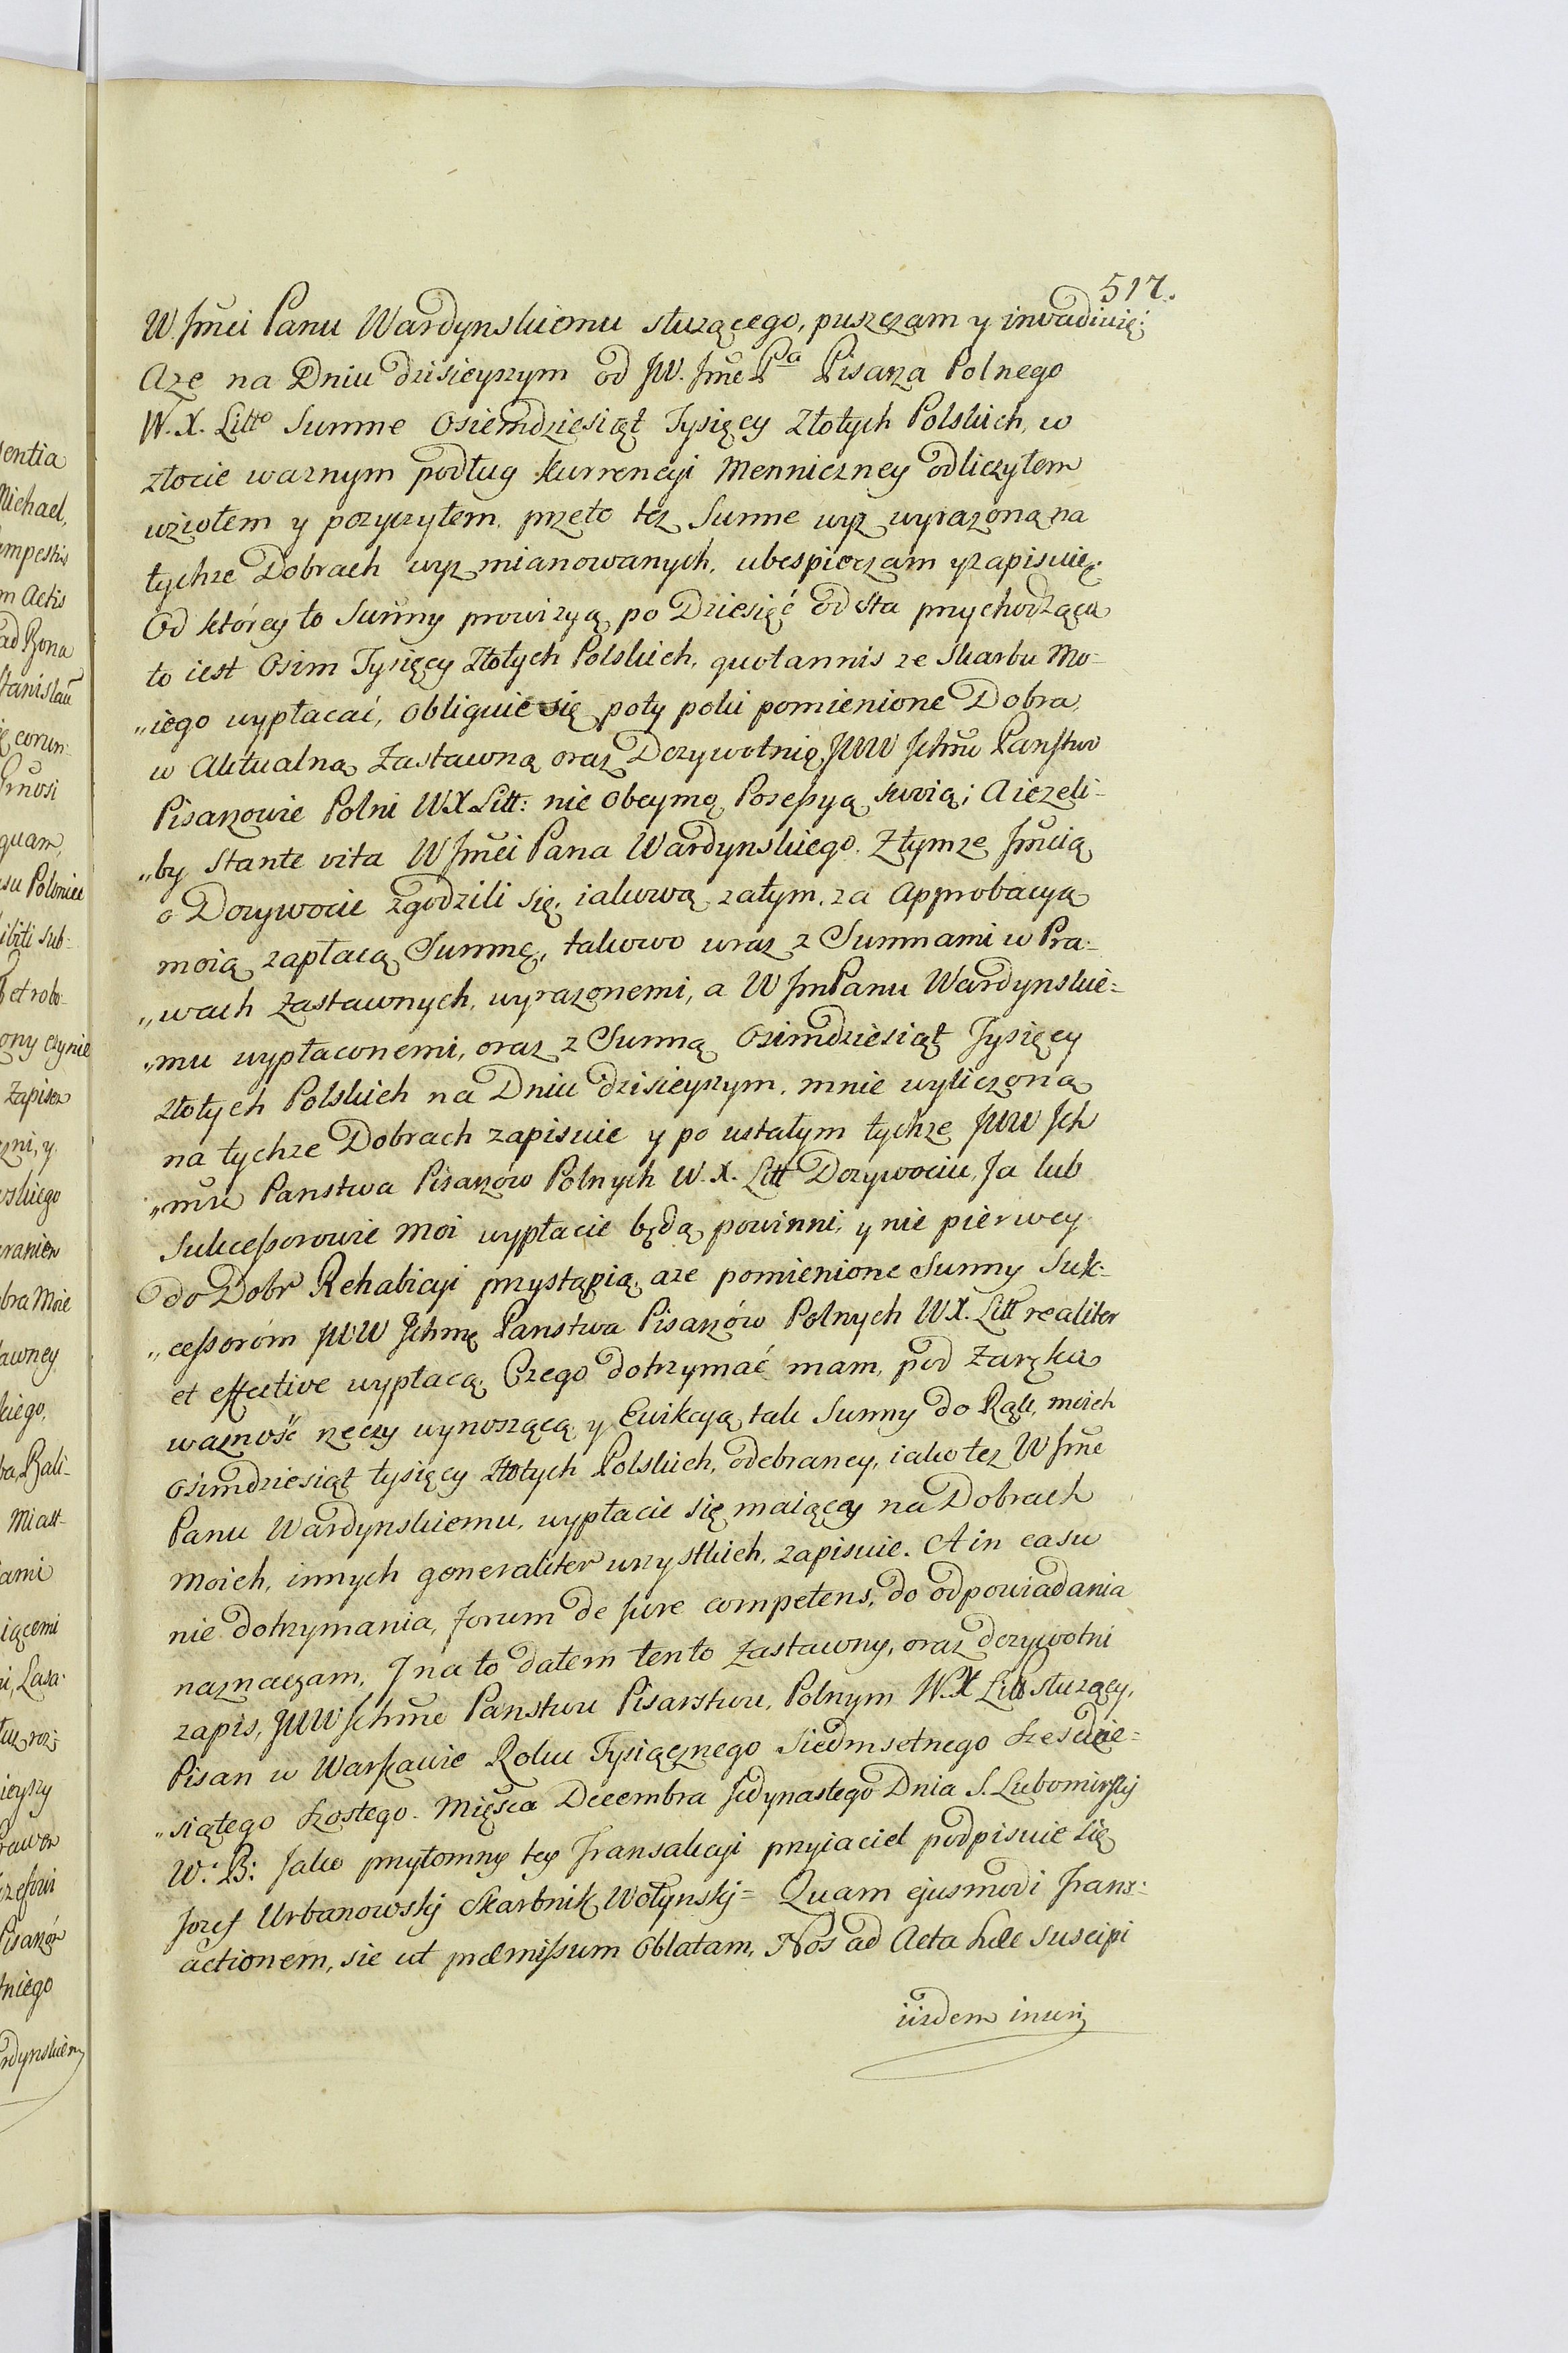 517.
W Jmći Panu Wardynskiemu służącego, puszczam y inwadiuię:
Aze na Dniu dzisieyszym od JW. Jmć Pa Pisarza Polnego
W. X. Litto Summe Osiemdziesiąt Tysięcy Złotych Polskich, w
złocie waznym podług kurrencyi Menniczney odliczyłem
wziołem y pozyczyłem, przeto tez Summe wyz wyrazoną na
tychze Dobrach wyz mianowanych, ubespieczam y zapisuię.
Od którey to Sum̃y prowizyą po Dziesięć od sta przychodzącą
to iest Osim Tysięcy Złotych Polskich, quotannis ze Skarbu Mo-
„iego wypłacać, obliguie się poty poki pomienione Dobra,
w Aktualną Zastawną oraz Dozywotnię JWW Ichmć Panstwo
Pisarzowie Polni WX Litt: nie obeymą Posessyą swoią; A iezeli-
„by Stante vita W Jmći Pana Wardynskiego. Z tymze Jmcią
o Dozywocie zgodzili się, iakową zatym, za Approbacyą
moią zapłacą Summę, takowo wraz z Summami w Pra-
„wach Zastawnych, wyrazonemi, a W JmPanu Wardynskie=
„mu wypłaconemi, oraz z Summą Osimdziesiąt Tysięcy
złotych Polskich na Dniu dzisieyszym, mnie wyliczoną
na tychze Dobrach zapisuie y po ustałym tychze JWW Ich
„mć Panstwa Pisarzow Polnych W. X. Litt Dozywociu, Ja lub
Sukcessorowie Moi wypłacic będą powinni, y nie pierwey
do Dobr Rehabicyi przystąpią, aze pomienione Summy Suk-
„cessoróm JWW Ichmę Panstwa Pisarzów Polnych WX. Litt realiter
et effective wypłacą. Czego dotrzymać mam, pod Zaręką
waznosć rzeczy wynoszącą y Ewikcyą tak Summy do Rąk, moich
osimdziesiąt tysięcy Złotych Polskich, odebraney, iako tez W Jmć
Panu Wardynskiemu, wypłacic się maiącey na Dobrach
Moich, innych generaliter wszystkich, zapisuie. A in casu
nie dotrzymania, Forum de Jure competens, do odpowiadania
naznaczam, J na to dałem tento Zastawny, oraz dozywotni
zapis, JWW Ichmć Panstwu Pisarstwu, Polnym W.X Litt służący,
Pisan w Warszawie Roku Tysiącznego Siedmsetnego Szescdzie=
„siątego Szostego. Mięsca Decembra Jedynastego Dnia S. Lubomirskj
W: B: Jako przytomny tey Transakcyi przyiaciel podpisuie się
Jozef Urbanowskj Skarbnik Wołynskj = Quam ejusmodi Trans-
actionem, sic ut præmissum Oblatam, Nos ad Acta hæc suscipi
iisdem inseri